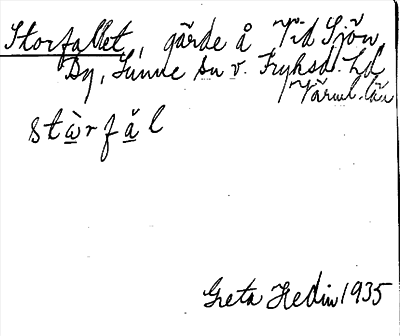 Storfallet, gärde å Vid Sjön
By, Sunne sn v. Fryksd. hd
Värml. län
stὼrfa̲l
Greta Hedin 1935